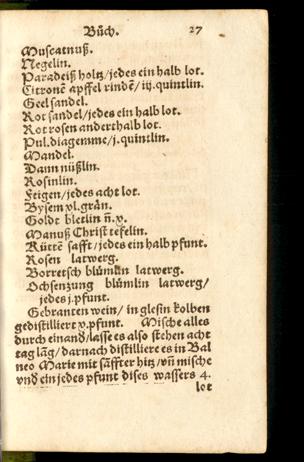 Bůch. 27
Muscatnuß.
Negelin.
Paradeiß holtz/jedes ein halb lot.
Citronē apffel rindē/ iij. quintlin.
Geel sandel.
Rot sandel/jedes ein halb lot.
Rot rosen anderthalb lot.
Pul. diagemme/j. quintlin.
Mandel.
Dann nüßlin.
Rosinlin.
Feigen/jedes acht lot.
Bysem vl. grān.
Goldt bletlin n̄. v.
Manuß Christ tefelin.
Küttē safft/jedes ein halb pfunt.
Rosen latwerg.
Borretsch blůmlin latwerg.
Ochsenzung blůmlin latwerg/
jedes j. pfunt.
Gebranten wein/ in glesin kolben
gedistilliert v. pfunt. Mische alles
durch einand/lasse es also stehen acht
tag lāg/ darnach distilliere es in Bal
neo Marie mit säffter hitz/vn̄ mische
vnd ein jedes pfunt dises wassers 4.
lot